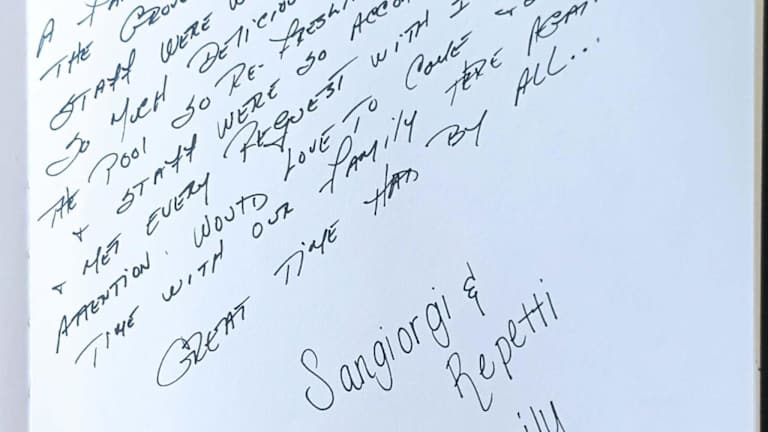 A
THE GROU
STAFF WERE
SO MUCH DELICIOU
THE POOL SO RE-FRESHI
+ STAFF WERE SO ACCO
+ MET EVERY REQUEST WITH I
ATTENTION. WOULD LOVE TO COME
TIME WITH OUR FAMILY HERE AGAI
GREAT TIME HAD BY ALL...
Sangiorgi &
Repetti
ily